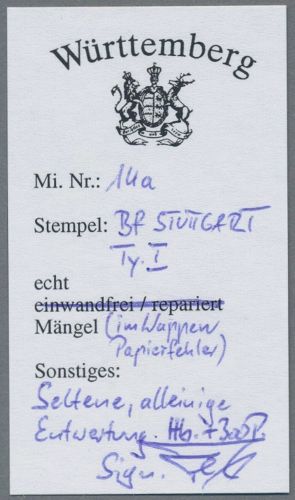 Württemberg
Mi. Nr.: 14a
Stempel: BF STUTTGART
Ty. I
echt
einwandfrei / repariert
Mängel (im Wappen
Papierfehler)
Sonstiges:
Seltene, alleinige
Entwertung. Hb. +300P.
Sign.